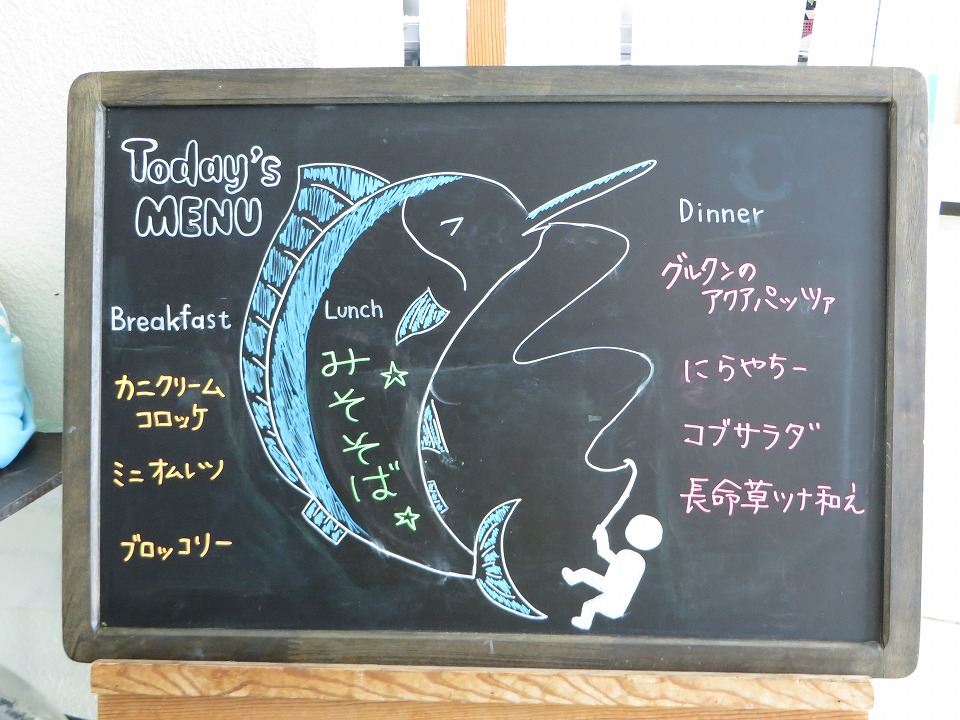 Today's
MENU
Breakfast
カニクリーム
コロッケ
ミニオムレツ
ブロッコリー
Lunch
みそそば
Dinner
グルクンの
アクアパッツァ
にらやちー
コブサラダ
長命草ツナ和え